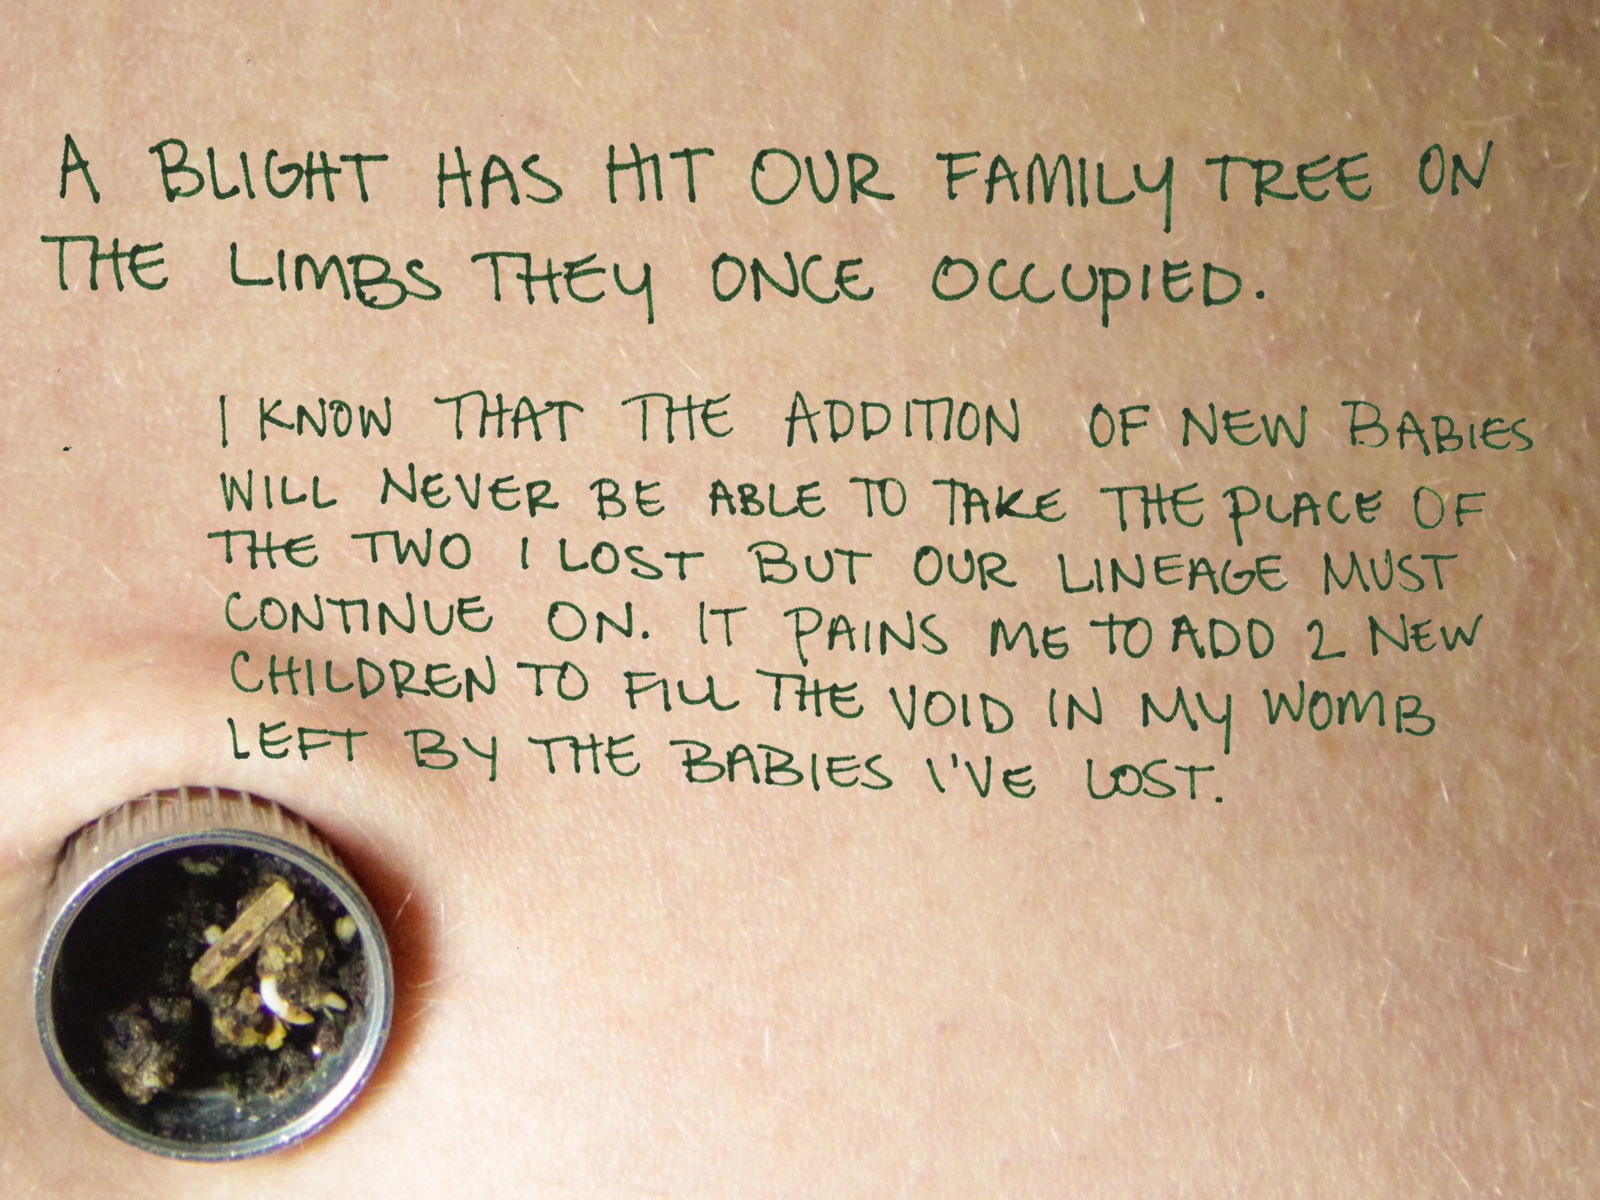 A BLIGHT HAS HIT OUR FAMILY TREE ON
THE LIMBS THEY ONCE OCCUPIED.
I KNOW THAT THE ADDITION OF NEW BABIES
WILL NEVER BE ABLE TO TAKE THE PLACE OF
THE TWO I LOST BUT OUR LINEAGE MUST
CONTINUE ON. IT PAINS ME TO ADD 2 NEW
CHILDREN TO FILL THE VOID IN MY WOMB
LEFT BY THE BABIES I'VE LOST.